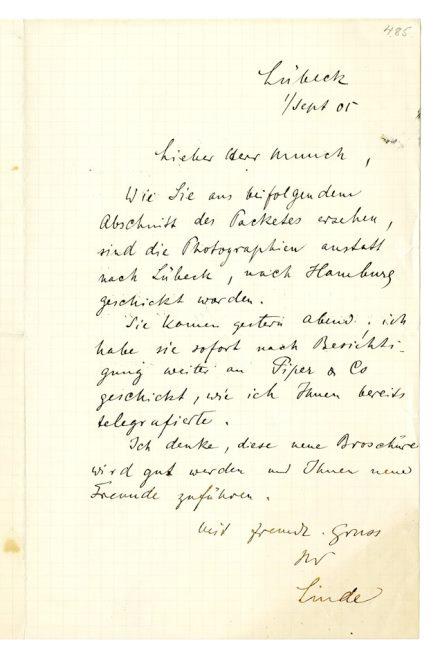 485.
Lübeck
1/Sept 05
Lieber Herr Munch,
Wie Sie aus beifolgendem
Abschnitt des Packetes ersehen,
sind die Photographien anstatt
nach Lübeck, nach Hamburg
geschickt worden.
Sie kamen gestern Abend. ich
habe sie sofort nach Besichti-
gung weiter an Piper & Co
geschickt, wie ich Ihnen bereits
telegrafierte.
Ich denke, diese neue Broschüre
wird gut werden und Ihnen neue
Freunde zuführen.
Mit freundl. Gruss
Ihr
Linde